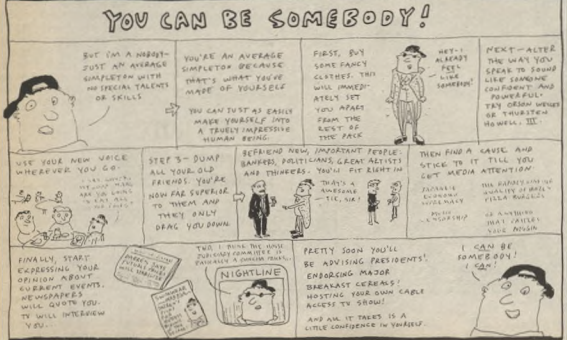 YOU CAN BE SOMEBODY!
BUT I'M A NOBODY-
JUST AN AVERAGE
SIMPLETON WITH
NO SPECIAL TALENTS
OR SKILLS
YOU'RE AN AVERAGE
SIMPLETON BECAUSE
THAT'S WHAT YOU'VE
MADE OF YOURSELF
YOU CAN JUST AS EASILY
MAKE YOURSELF INTO
A TRUELY IMPRESSIVE
HUMAN BEING.
FIRST, BUY
SOME FANCY
CLOTHES. THIS
WILL IMMEDI-
ATELY SET
YOU APART
FROM THE
REST OF
THE PACK
HEY- I
ALREADY
FEEL
LIKE
SOMEBODY!
NEXT- ALTER
THE WAY YOU
SPEAK TO SOUND
LIKE SOMEONE
CONFIDENT AND
POWERFUL-
TRY ORSON WELLES
OR THURSTEN
HOWELL III.
USE YOUR NEW VOICE
WHEREVER YOU GO.
STEP 3- DUMP
ALL YOUR OLD
FRIENDS. YOU'RE
NOW FAR SUPERIOR
TO THEM AND
THEY ONLY
DRAG YOU DOWN
BEFRIEND NEW, IMPORTANT PEOPLE-
BANKERS, POLITICIANS, GREAT ARTISTS
AND THINKERS. YOU'LL FIT RIGHT IN
THAT'S A
AWESOME
TIE, SIR!
THEN FIND A CAUSE AND
STICK TO IT TILL YOU
GET MEDIA ATTENTION
JAPANESE
ECONOMIC
SUPREMACY
MUSIC
CENSORSHIP
OR ANYTHING
THAT
YOUR NOGGIN
FINALLY, START
EXPRESSING YOUR
OPINION ABOUT
CURRENT EVENTS.
NEWSPAPERS
WILL QUOTE YOU.
TV WILL INTERVIEW
YOU.
JUDICIARY COMMITTEE IS
NIGHTLINE
PRETTY SOON YOU'LL
BE ADVISING PRESIDENTS!
ENDORSING MAJOR
BREAKAST CEREALS!
HOSTING YOUR OWN CABLE
ACCESS TV SHOW!
AND ALL IT TAKES IS A
LITTLE CONFIDENCE IN YOURSELF.
I CAN BE
SOMEBODY!
I CAN!